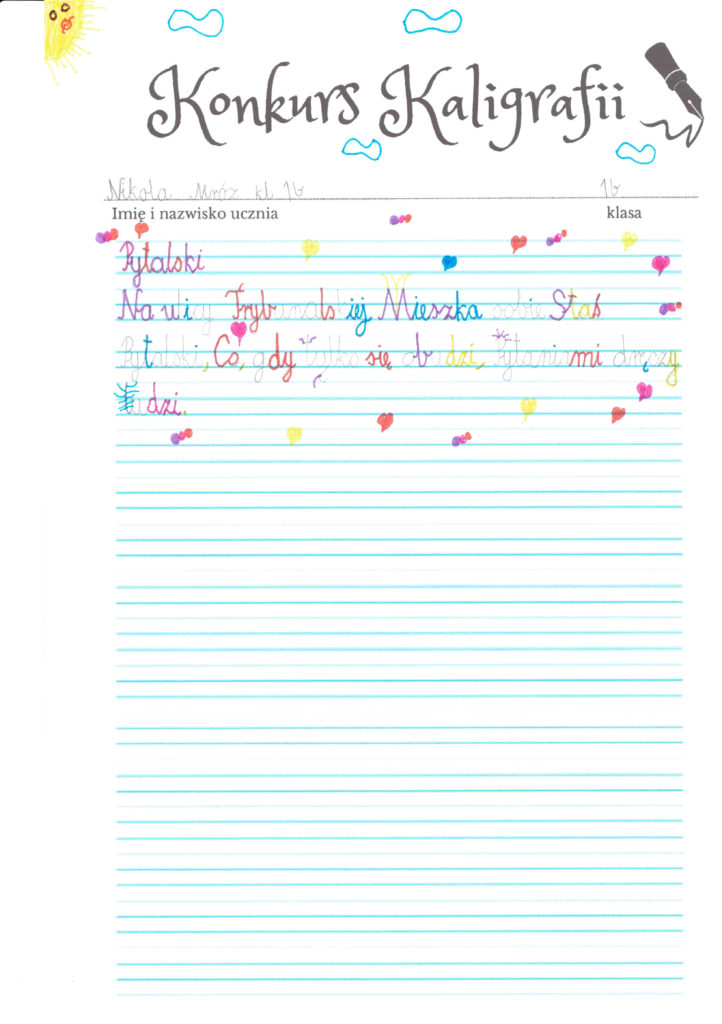 Konkurs Kaligrafii
Nikola Mróz kl 1b 1b
Imię i nazwisko ucznia klasa
Pytalski
Na ulicy Trybunalskiej Mieszka sobie Staś
Pytalski, Co, gdy tylko się obudzi, Pytaniami dręczy
ludzi.